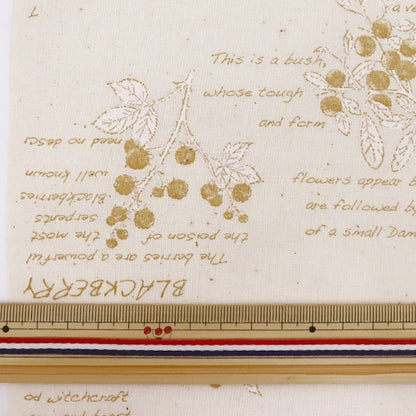 a ve
This is a bush,
whose tough
and form
flowers appear b
are followed by
of a small Dam
BLACKBERRY
The berries are a powerful
the poison of the most
serpents
Blackberries
well known
need no descr
od witchcraft